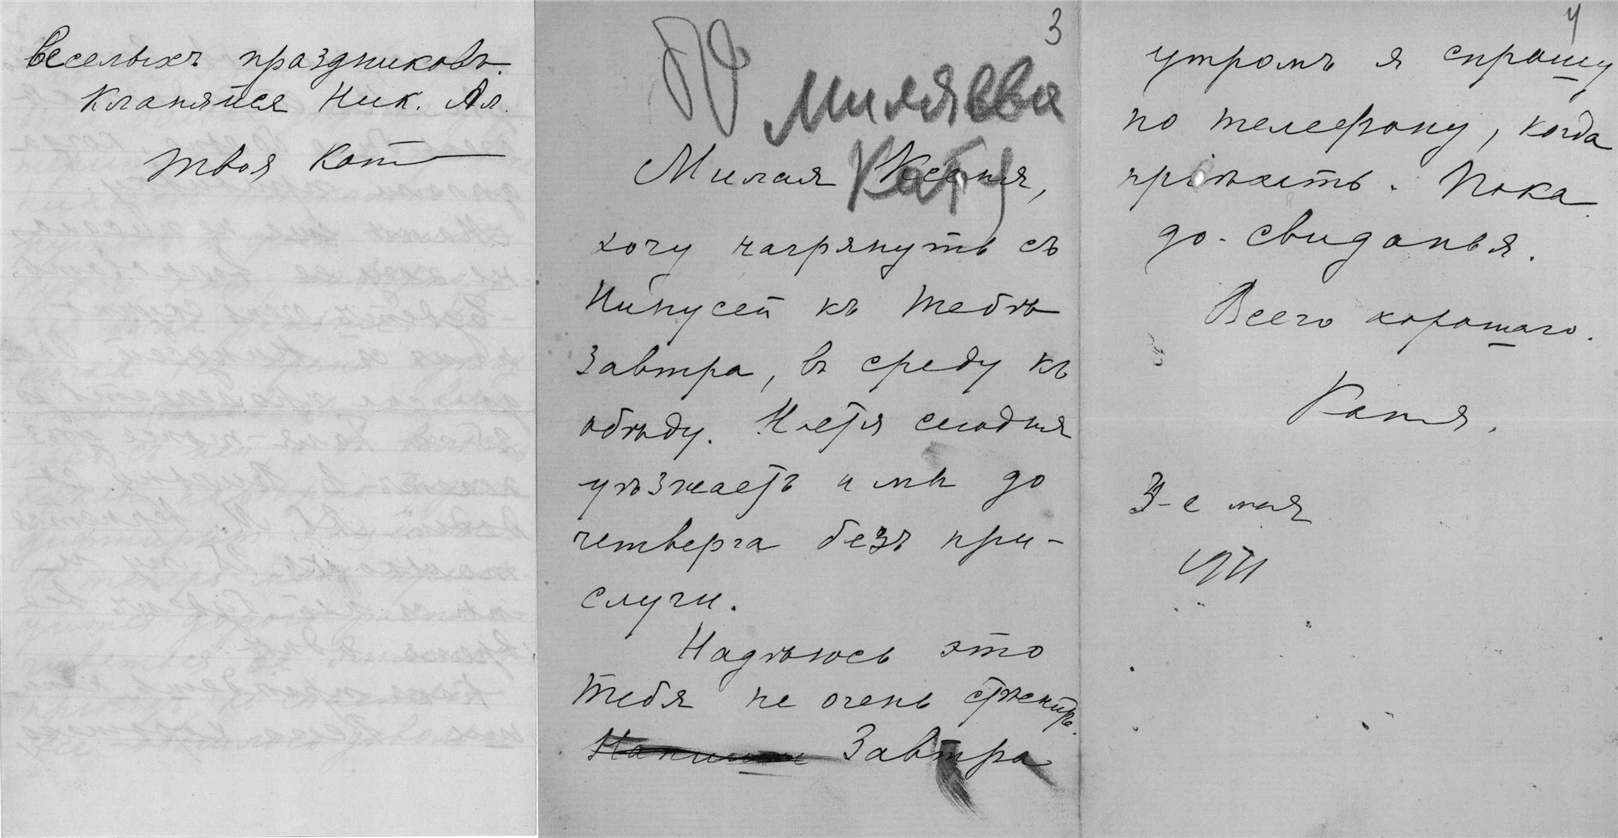 веселыхъ праздниковъ.
Кланяйся Ник. Ал.
Твоя Катя
3
Миляева
Кату
Милая Ксенія,
хочу нагрянуть съ
Нинусей къ тебѣ
завтра, въ среду къ
обѣду. Настя сегодня
уѣзжаетъ и мы до
четверга безъ при-
слуги.
Надѣюсь это
тебя не очень стѣснитъ.
Завтра
4
утромъ я спрошу
по телефону, когда
пріѣхать. Пока
до-свиданья.
Всего хорошаго.
Катя.
3-е мая